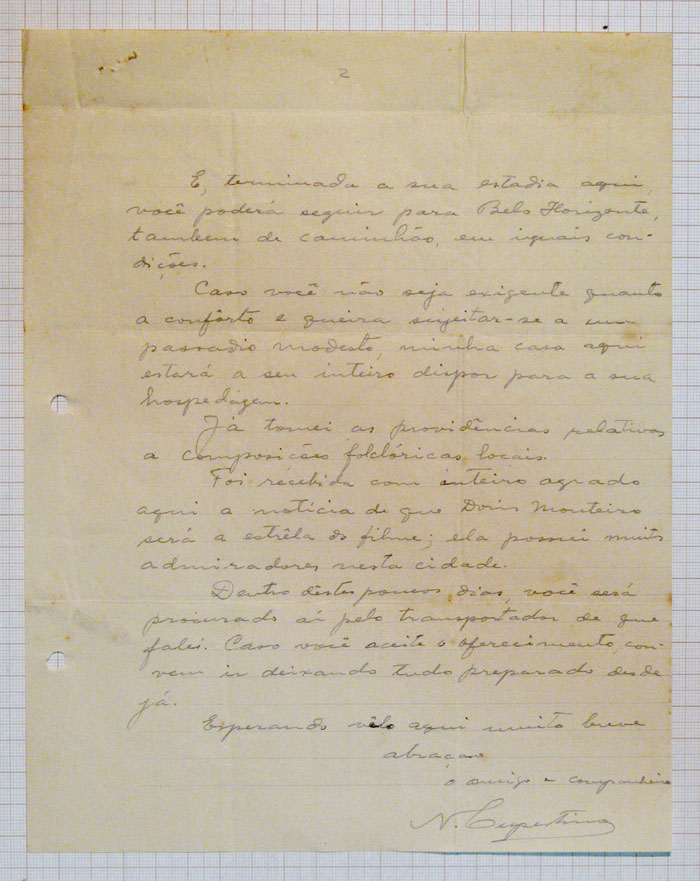 2
E, terminada a sua estadia aqui,
você poderá seguir para Belo Horizonte,
tambem de caminhão, em iguais con-
dições.
Caso você não seja exigente quanto
a confôrto e queira sujeitar-se a um
passadio modesto, minha casa aqui
estará a seu inteiro dispor para a sua
hospedagem.
Já tomei as providências relativas
a composições folclóricas locais.
Foi recebida com inteiro agrado
aqui a notícia de que Doris Monteiro
será a estrêla do filme; ela possui muitos
admiradores nesta cidade.
Dentro dêstes poucos dias, você será
procurado aí pelo transportador de que
falei. Caso você aceite o oferecimento, con-
vem ir deixando tudo preparado desde
já.
Esperando vê-lo aqui muito breve
abraça-o
o amigo e companheiro
N. Cupertino